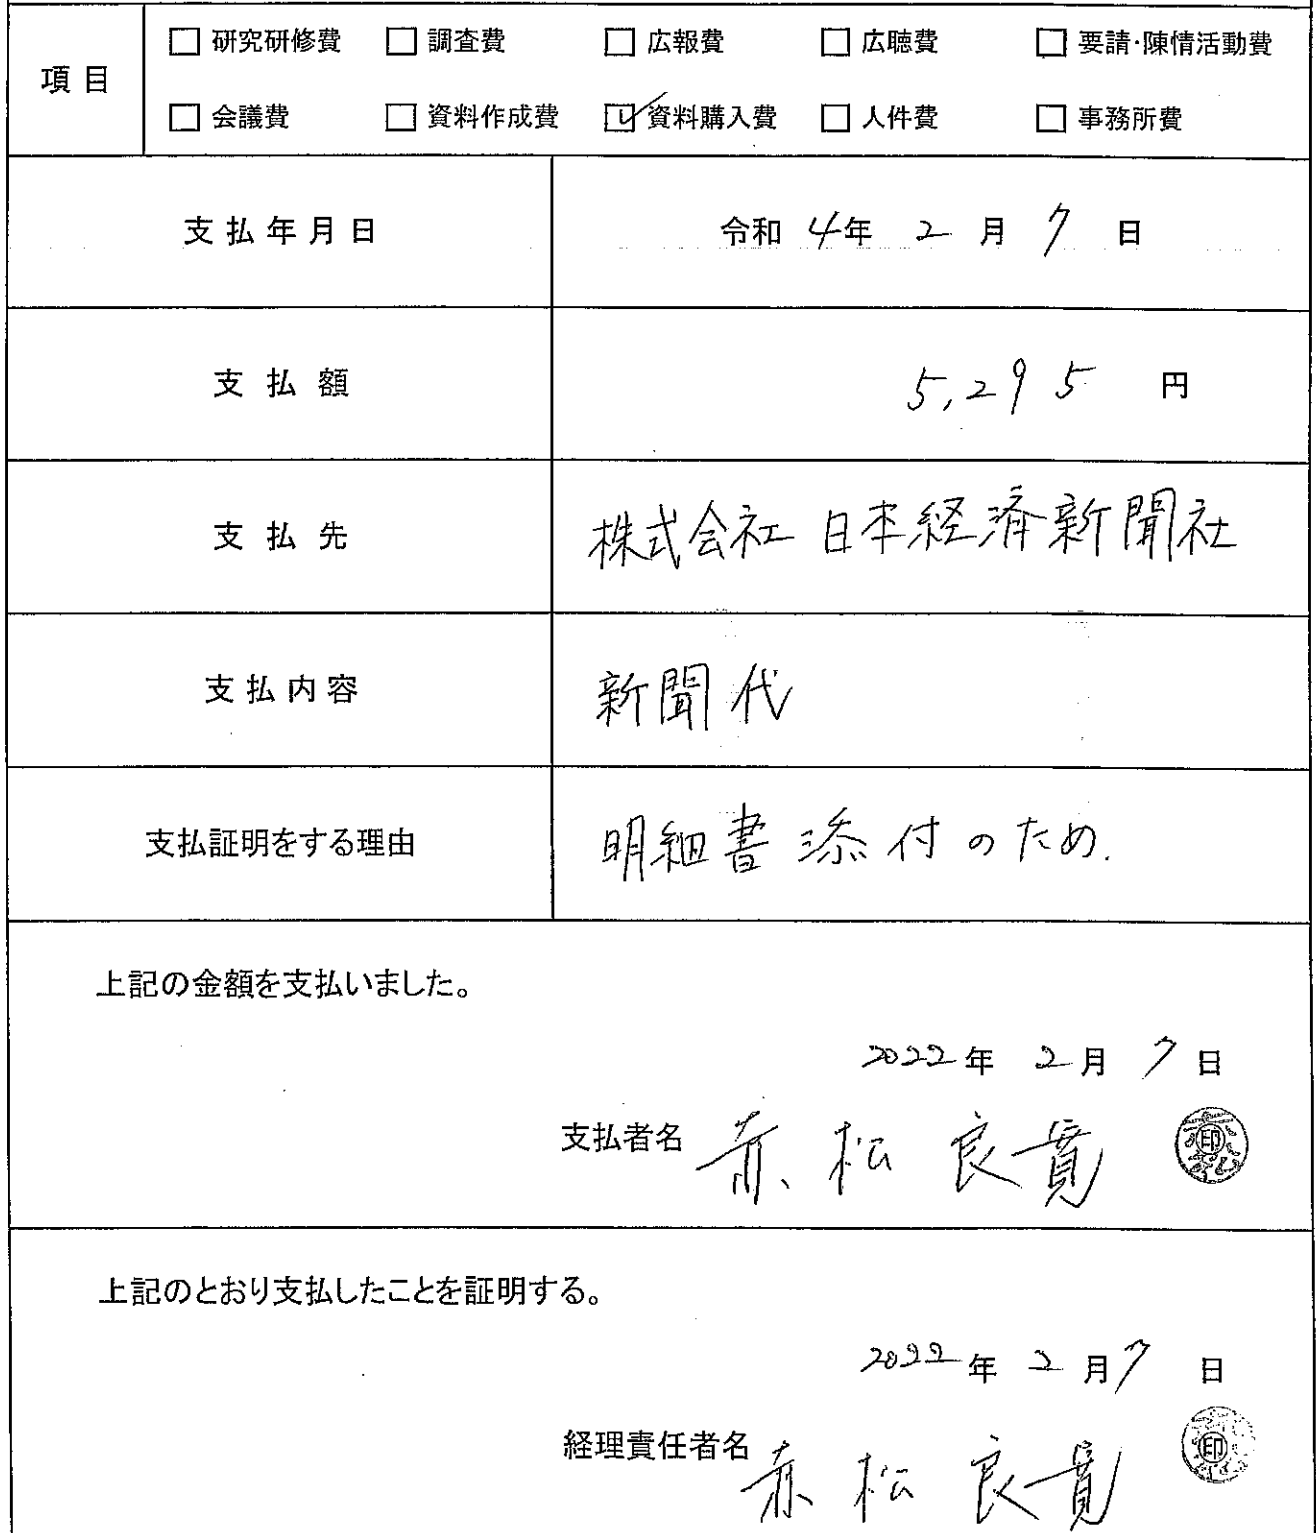 項目
□ 研究研修費 □ 調査費 □ 広報費 □ 広聴費 □ 要請・陳情活動費
□ 会議費 □ 資料作成費 ☑ 資料購入費 □ 人件費 □ 事務所費
支払年月日 令和 4年 2月 7日
支払額 5,295 円
支払先 株式会社 日本経済新聞社
支払内容 新聞代
支払証明をする理由 明細書添付のため.
上記の金額を支払いました。
2022年 2月 7日
支払者名 赤松 良寛 印
上記のとおり支払したことを証明する。
2022年 2月 7日
経理責任者名 赤松 良寛 印